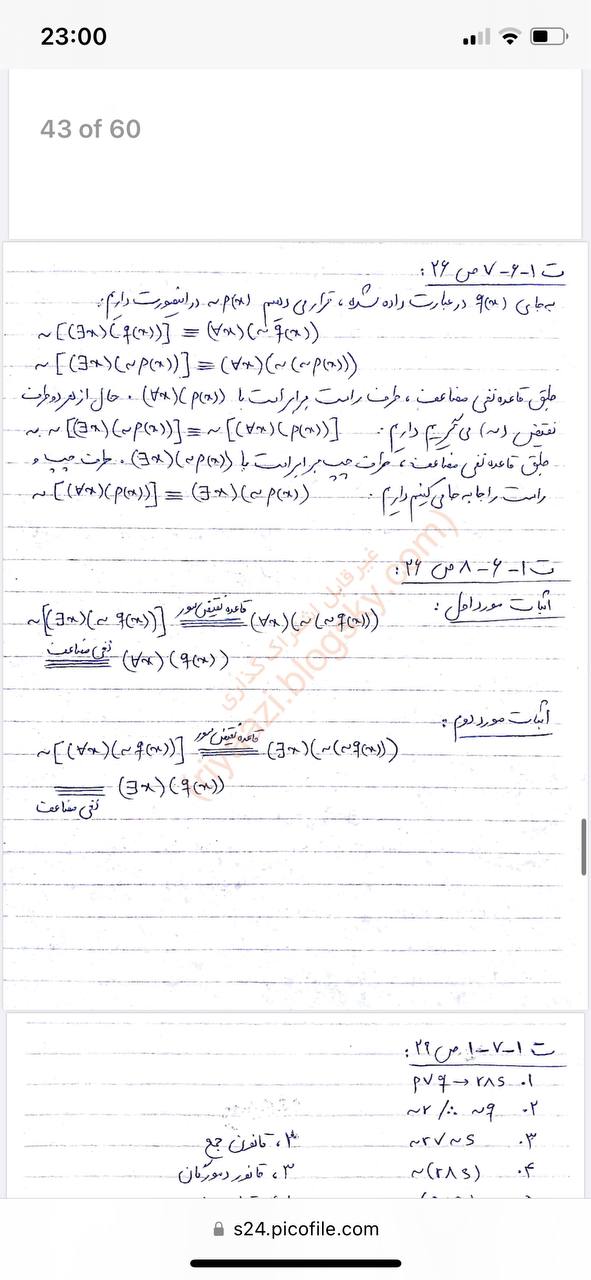 23:00
43 of 60
ت ۱-۶-۷ ص ۲۶:
به جای q(x) در عبارت داده شده، قرار می دهیم ~p(x) در اینصورت داریم:
~[(∃x)(q(x))] ≡ (∀x)(~q(x))
~[(∃x)(~p(x))] ≡ (∀x)(~(~p(x)))
طبق قاعده نفی مضاعف، طرف راست برابر است با (∀x)(p(x)). حال از هر دو طرف
نقیض (~) می گیریم داریم: ~~[(∃x)(~p(x))] ≡ ~[(∀x)(p(x))]
طبق قاعده نفی مضاعف، طرف چپ برابر است با (∃x)(~p(x)). طرف چپ و
راست را جابه جا می کنیم داریم: ~[(∀x)(p(x))] ≡ (∃x)(~p(x))
ت ۱-۶-۸ ص ۲۶:
اثبات مورد اول:
~[(∃x)(~q(x))] قاعده نقیض سور (∀x)(~(~q(x)))
نفی مضاعف (∀x)(q(x))
اثبات مورد دوم:
~[(∀x)(~q(x))] قاعده نقیض سور (∃x)(~(~q(x)))
(∃x)(q(x))
نفی مضاعف
غیرقابل اشتراک گذاری
(riyazi.blogsky.com)
ت ۱-۷-۱ ص ۲۹:
۱. p∨q→r∧s
۲. ~r /∴ ~q
۳. ~r∨~s ۲، قانون جمع
۴. ~(r∧s) ۳، قانون دمورگان
s24.picofile.com